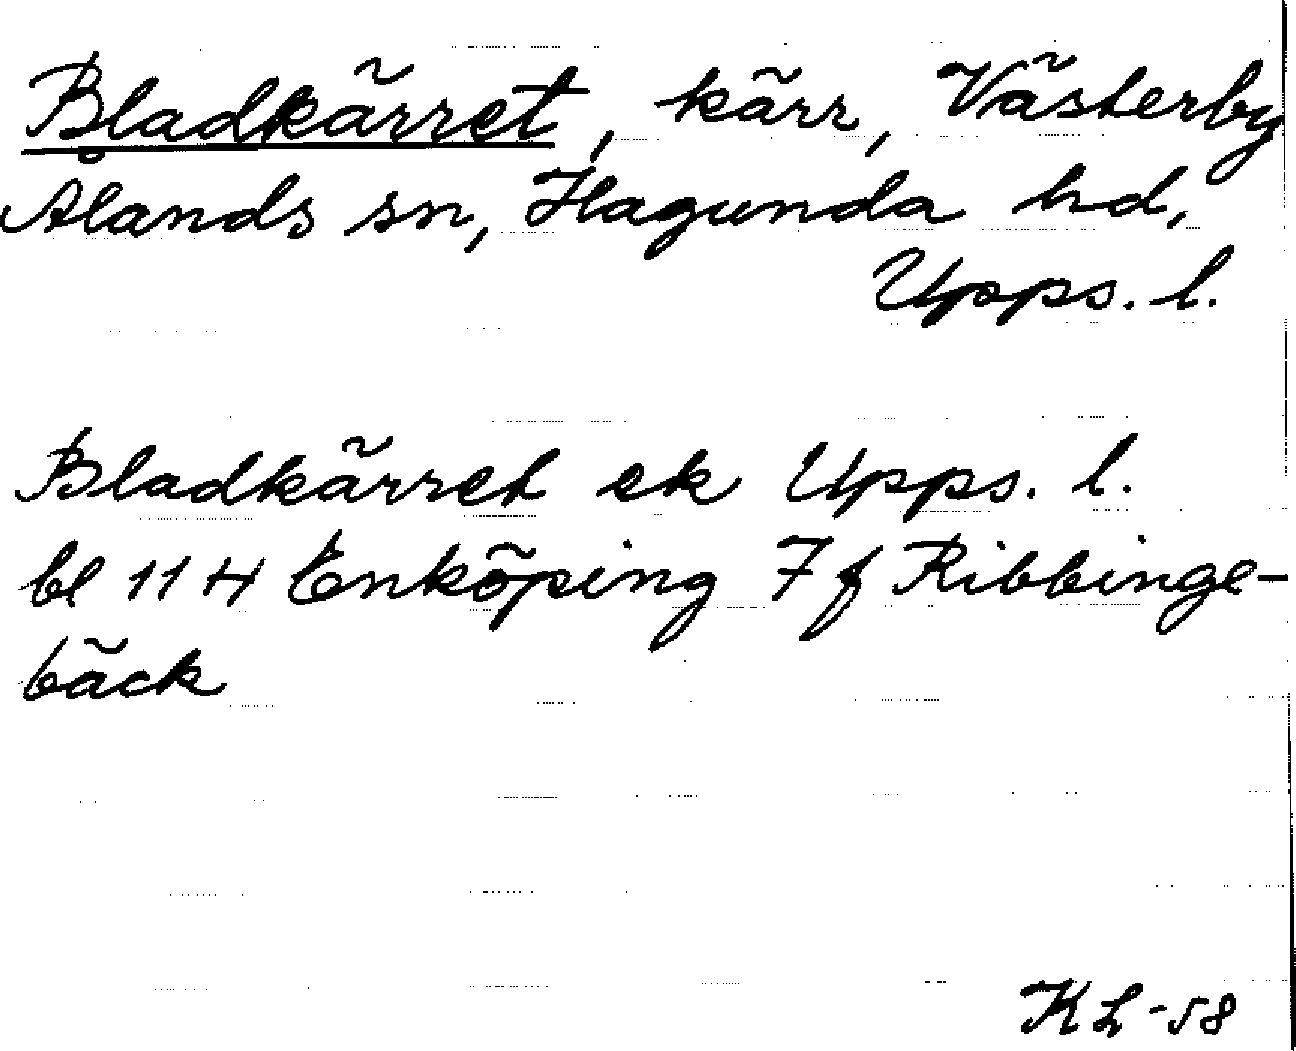 Bladkärret, kärr, Västerby
Ålands sn, Hagunda hd,
Upps. l.
Bladkärret ek Upps. l.
bl 114 Enköping 7f Ribbinge-
bäck
KL -58